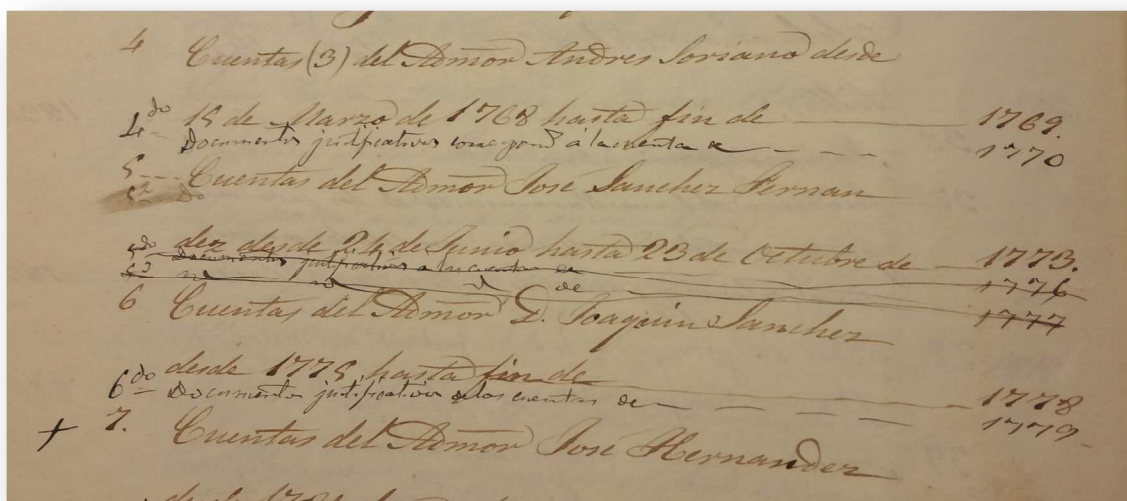 4 Cuentas (3) del Admor Andres Soriano desde
15 de Marzo de 1768 hasta fin de 1769.
4do Documentos justificativos correspond a la cuenta de 1770
5 Cuentas del Admor José Sanchez Fernan
dez desde 24 de Junio hasta 23 de Octubre de 1773.
5do Documentos justificativos a las cuentas de 1776
de 1777
6 Cuentas del Admor D. Joaquin Sanchez
desde 1775 hasta fin de 1778
6do Documentos justificativos a las cuentas de 1779
+ 7. Cuentas del Admor José Hernandez